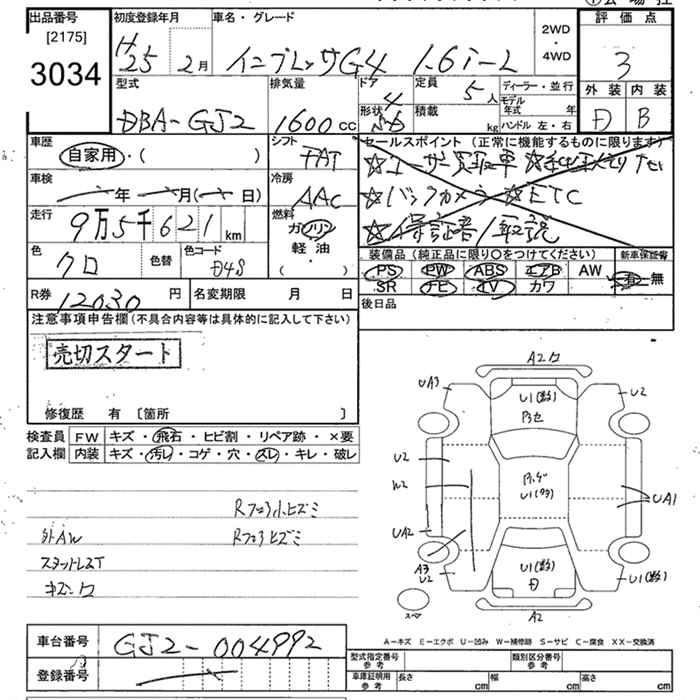 出品番号
[2175]
3034
初度登録年月
H25 2月
車名・グレード
インプレッサG4 1.6i-L
2WD
・
4WD
評価点
3
型式
DBA-GJ2
排気量
1600 cc
ドア
4
形状
定員
5人
積載
kg
ディーラー・並行
モデル年式 年
ハンドル 左・右
外装 内装
D B
車歴
自家用・( )
シフト
FAT
セールスポイント (正常に機能するものに限ります)
☆ユーザー買取車
☆バックカメラ ☆ETC
☆保証書/取説
車検
年 月( 日)
冷房
AAC
走行
9万5千621 km
燃料
ガソリン
軽・油
・( )
色
クロ
色替
色コード
D4S
装備品 (純正品に限り○をつけてください)
新車保証書
PS PW ABS エアB AW
SR ナビ TV カワ
有・無
R券
12030円
名変期限 月 日
後日品
注意事項申告欄(不具合内容等は具体的に記入して下さい)
売切スタート
修復歴 有 [箇所 ]
検査員記入欄
FW キズ・飛石・ヒビ割・リペア跡・×要
内装 キズ・汚レ・コゲ・穴・スレ・キレ・破レ
Rフロア小ヒズミ
外AW
Rフロアヒズミ
スタットレスT
A2
UA3
U2
U1(数)
U2
W2
U1(多)
UA1
UA2
A3
U2
U1(数)
U1(数)
A2
スペア
A-キズ E-エクボ U-凹み W-補修跡 S-サビ C-腐食 XX-交換済
車台番号
GJ2-004992
登録番号
型式指定番号
参考
類別区分番号
参考
車庫証明用
参考
長さ cm
幅 cm
高さ cm